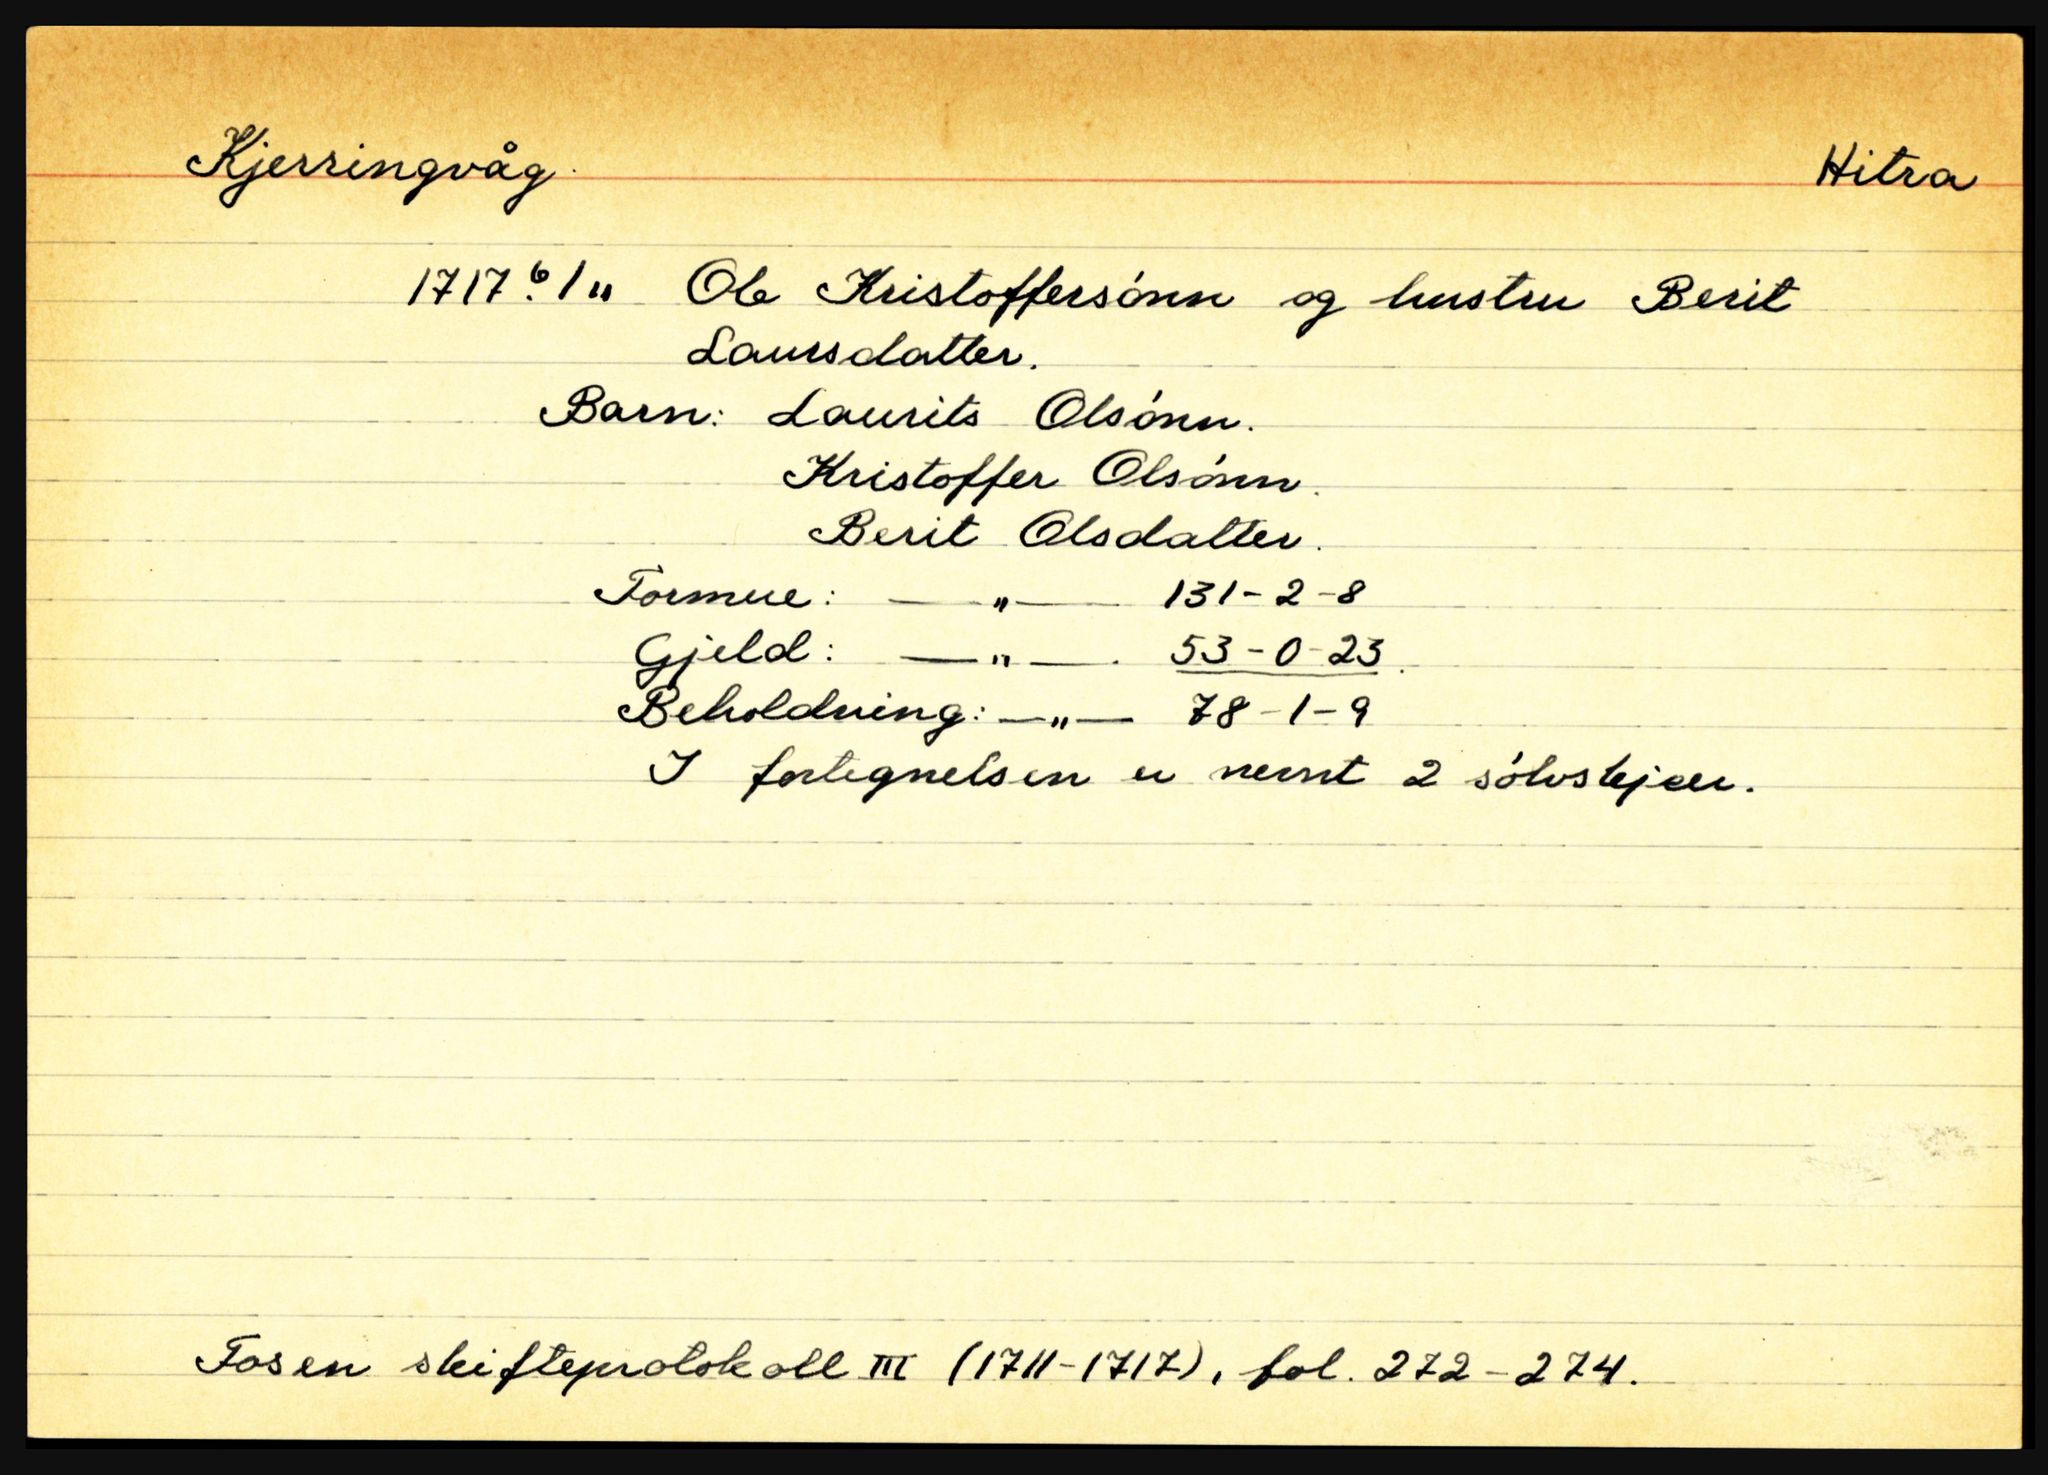 Kjerringvåg. Hitra
1717 6/11 Ole Kristoffersónn og hustru Berit
Laursdatter.
Barn: Laurits Olsónn.
Kristoffer Olsónn.
Berit Olsdatter.
Formue: —"— 131-2-8
Gjeld: —"— 53-0-23.
Beholdning: —"— 78-1-9
I fortegnelsen er nevnt 2 sólvskjeer.
Fosen skifteprotokoll III (1711-1717), fol. 272-274.